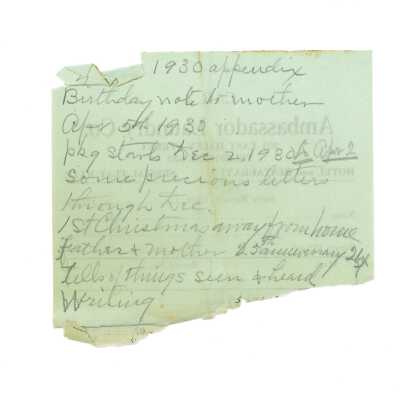 1930 appendix
Birthday note to mother
Apr 5th, 1930
pkg starts Dec 2, 1930 & Apr 2
Some precious letters
through Dec.
1st Christmas away from home
father & mother 25th anniversary
tells of things seen & heard
Writing.
Ambassador